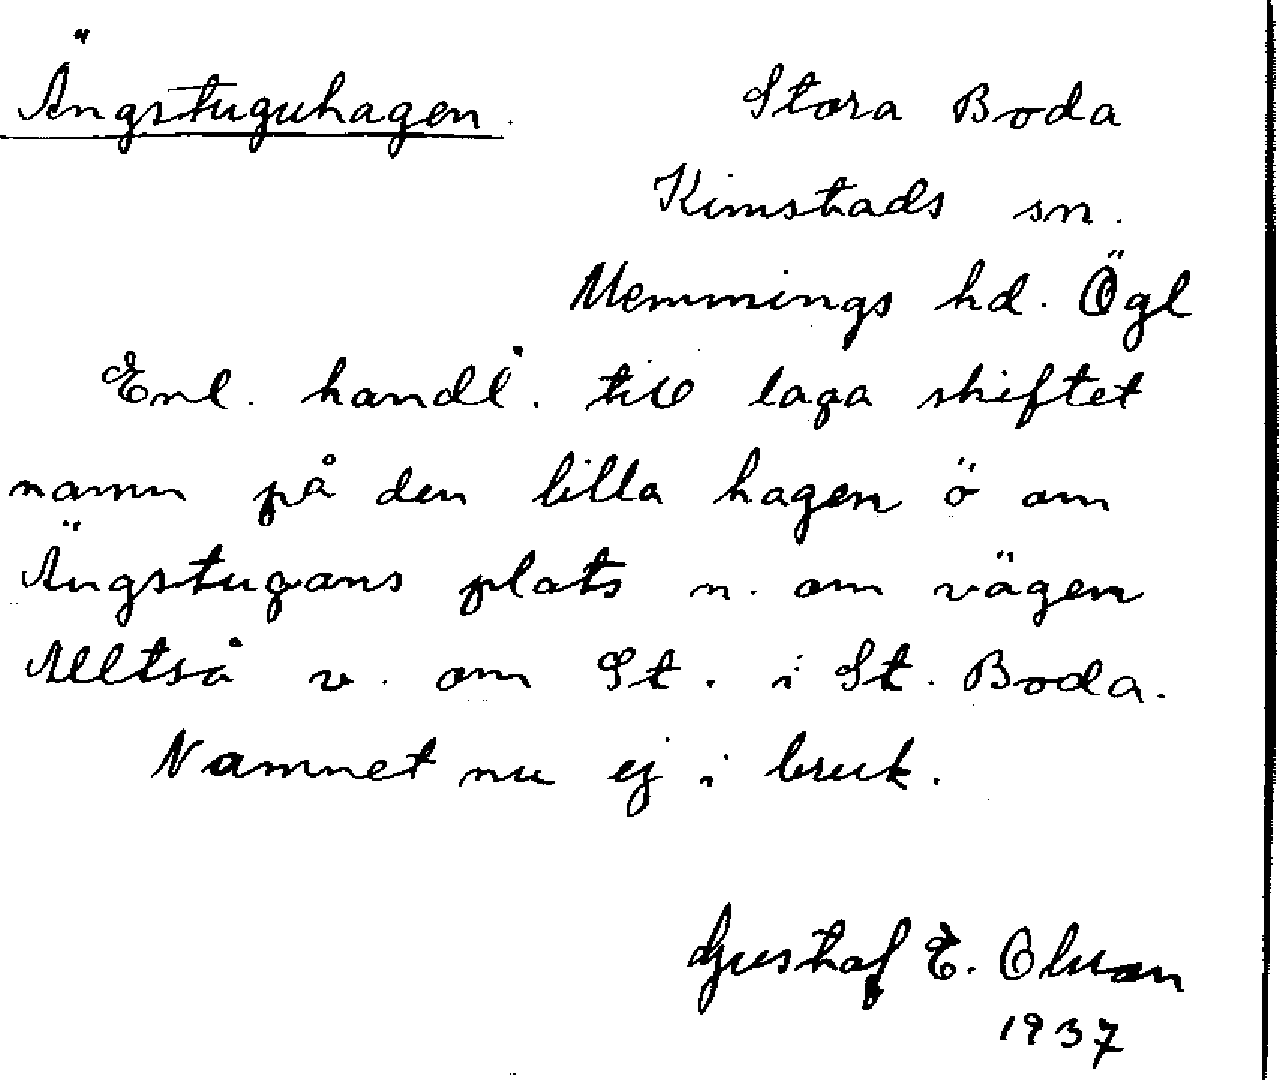 Ängstuguhagen Stora Boda
Kimstads sn.
Memmings hd. Ögl
Enl. handl. till laga skiftet
namn på den lilla hagen ö om
Ängstugans plats n. om vägen
Alltså v. om St. i St. Boda.
Namnet nu ej i bruk.
Gustaf E. Olsson
1937